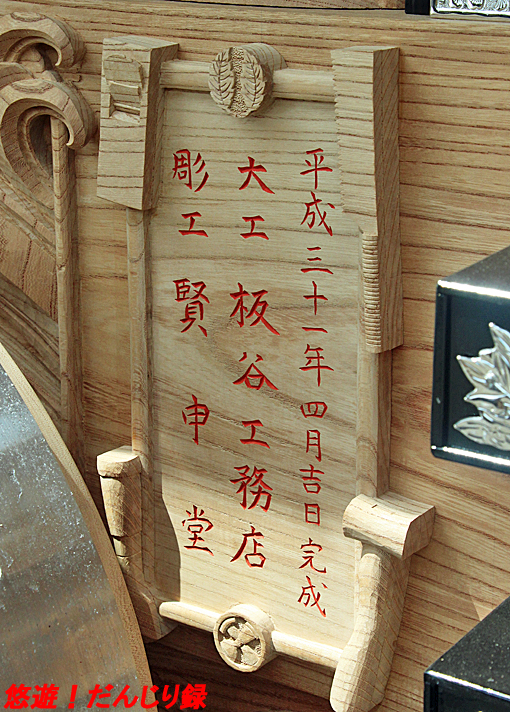 平成三十一年四月吉日完成
大工 板谷工務店
彫工 賢申堂
悠遊！だんじり録